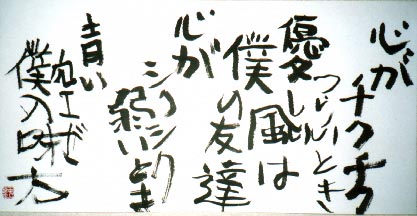 心が
チクチク
つらいとき
優しい
風は
僕の友達
心が
シクシク
弱いとき
青い
空
僕の味方